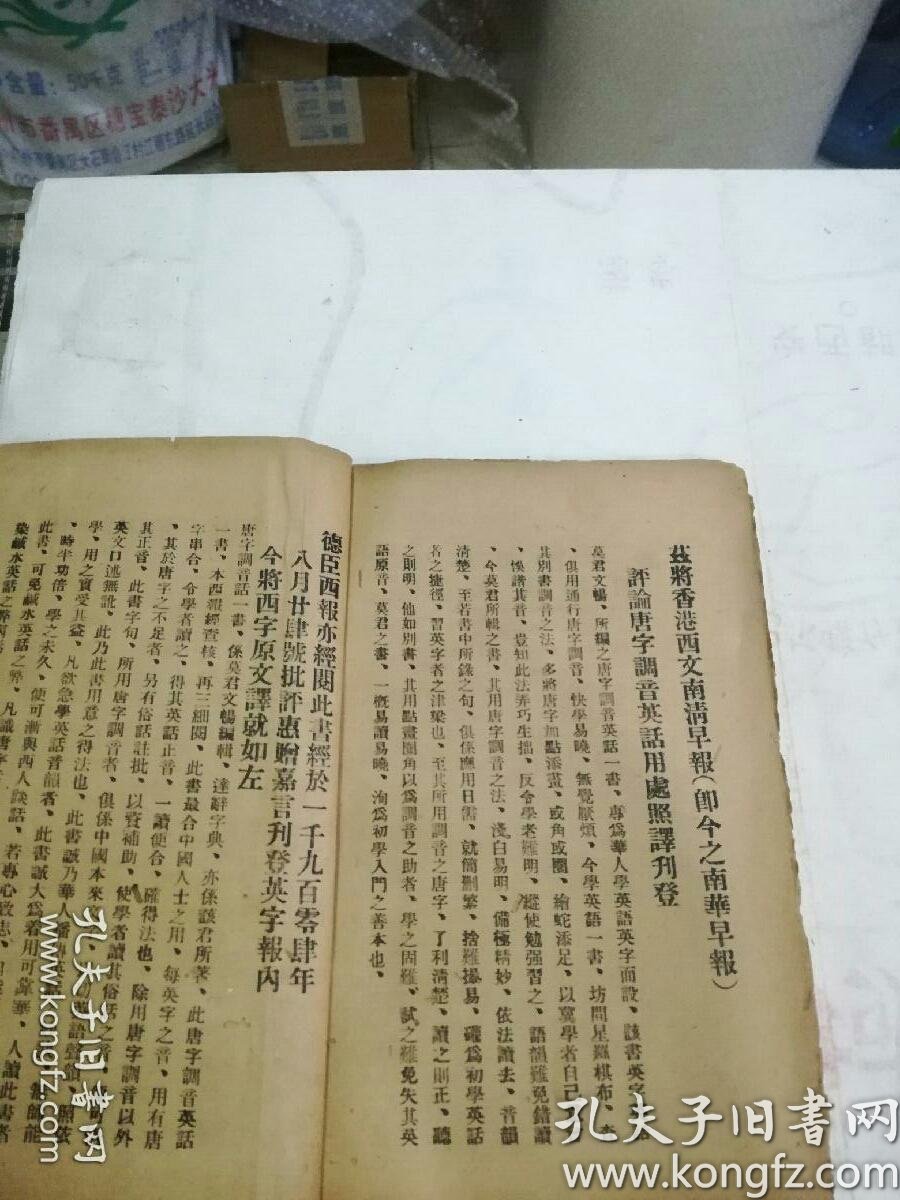 含量：50千克
市番禺区穗宝泰沙大
茲將香港西文南清早報（卽今之南華早報）
評論唐字調音英話用處照譯刊登
莫君文暢、所編之唐字調音英話一書、專爲華人學英語英字而設、該書英字
、俱用通行唐字調音、快學易曉、無覺厭煩、今學英語一書、坊間星羅棋布、查
其別書調音之法、多將唐字加點添畫、或角或圈、繪蛇添足、以冀學者自己
悞諧其音、豈知此法弄巧生拙、反令學者難明、縱使勉强習之、語韻難免錯讀
、今莫君所輯之書、其用唐字調音之法、淺白易明、備極精妙、依法讀去、音韻
清楚、至若書中所錄之句、俱係應用日需、就簡刪繁、捨難操易、確爲初學英話
者之捷徑、習英字者之津梁也、至其所用調音之唐字、了利清楚、讀之則正、聽
之則明、他如別書、其用點畫圈角以爲調音之助者、學之固難、試之難免失其英
語原音、莫君之書、一概易讀易曉、洵爲初學入門之善本也、
德臣西報亦經閱此書經於一千九百零肆年
八月廿肆號批評惠贈嘉言刊登英字報內
今將西字原文譯就如左
唐字調音話一書、係莫君文暢編輯、達辭字典、亦係該君所著、此唐字調音英話
一書、本西報經查核、再三細閱、此書最合中國人士之用、每英字之音、用有唐
字串合、令學者讀之、得其英話正音、一讀便合、確得法也、除用唐字調音以外
、其於唐字之不足者、另有俗話註批、以資補助、使學者讀其俗話之音、
其正音、此書字句、所用唐字調音者、俱係中國本來
英文口述無訛、此乃此書用意之得法也、此書誠乃華人
學、用之實受其益、凡欲急學英話音韻者、此書誠大爲着用可靠
、時半功倍、學之未久、便可漸與西人談話、若專心致志、
此書、可免鹹水英話之弊、凡識唐字
染鹹水英話之弊
人讀此書者
孔夫子旧书网
www.kongfz.com
孔夫子旧书网
www.kongfz.com